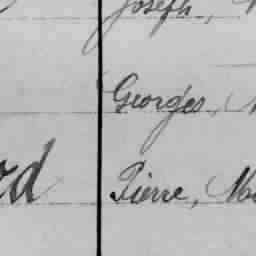 Joseph,
Georges,
Pierre,